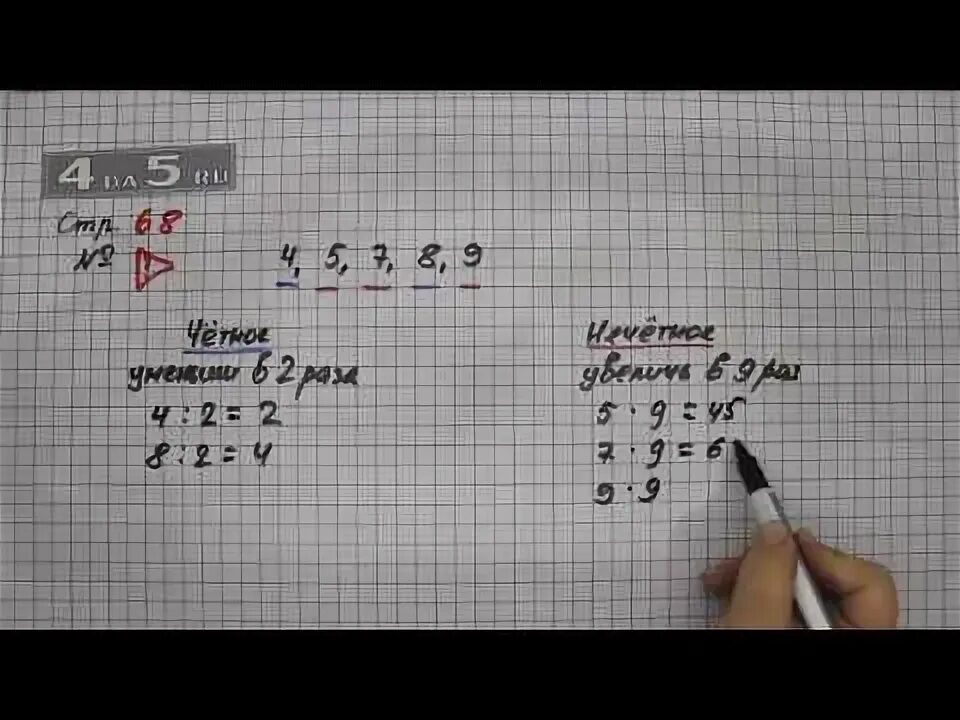 4 на 5 RU
Стр. 68
№
4, 5, 7, 8, 9
Чётное
уменьши в 2 раза
4 : 2 = 2
8 : 2 = 4
Нечётное
увеличь в 9 раз
5 · 9 = 45
7 · 9 = 6
9 · 9